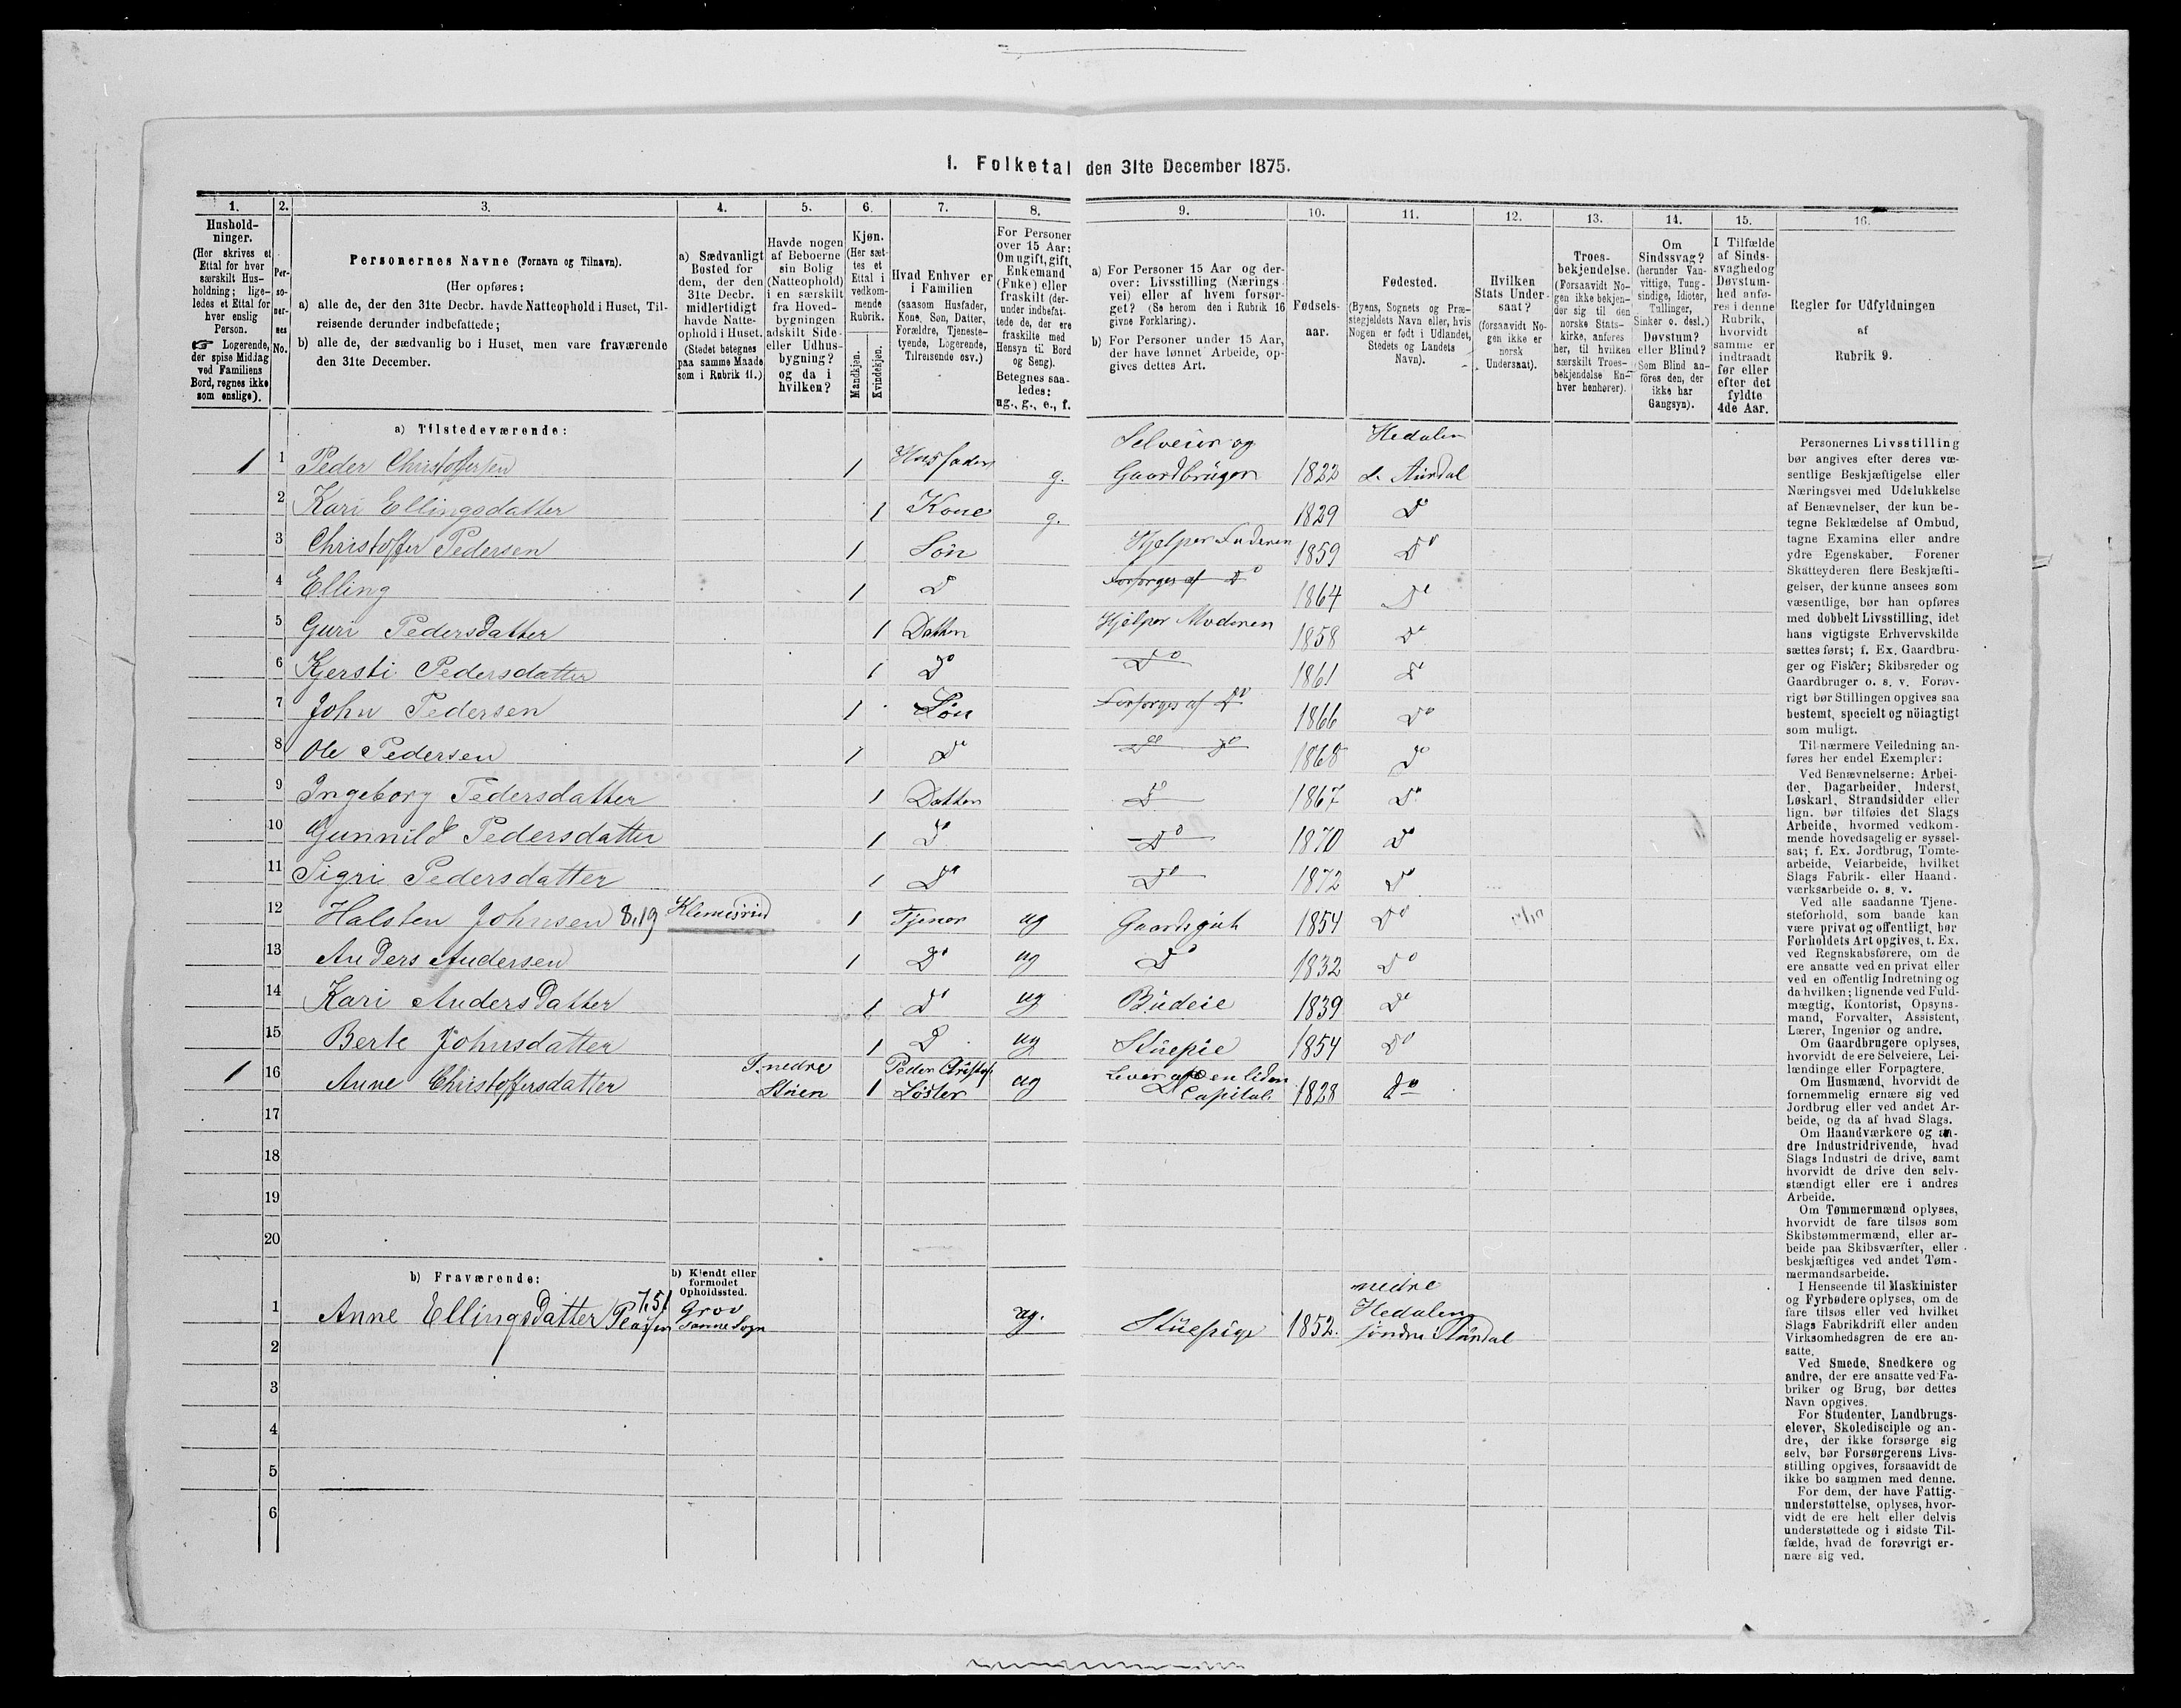 I. Folketal den 31te December 1875.
1. 2. 3. 4. 5. 6. 7. 8. 9. 10. 11. 12. 13. 14. 15. 16.
Hushold-
ninger.
(Her skrives et
Ettal for hver
særskilt Hus-
holdning; lige-
ledes et Ettal for
hver enslig
Person.
☞ Logerende,
der spise Middag
ved Familiens
Bord, regnes ikke
som enslige).
Per-
so-
ner-
nes
No.
Personernes Navne (Fornavn og Tilnavn).
(Her opføres:
a) alle de, der den 31te Decbr. havde Natteophold i Huset, Til-
reisende derunder indbefattede;
b) alle de, der sædvanlig bo i Huset, men vare fraværende
den 31te December.
a) Sædvanligt
Bosted for
dem, der den
31te Decbr.
midlertidigt
havde Natte-
ophold i Huset.
(Stedet betegnes
paa samme Maade
som i Rubrik 11.)
Havde nogen
af Beboerne
sin Bolig
(Natteophold)
i en særskilt
fra Hoved-
bygningen
adskilt Side-
eller Udhus-
bygning?
og da i
hvilken?
Kjøn.
(Her sæt-
tes et
Ettal i
vedkom-
mende
Rubrik.
Mandkjøn.
Kvindekjøn.
Hvad Enhver er
i Familien
(saasom Husfader,
Kone, Søn, Datter,
Forældre, Tjeneste-
tyende, Logerende,
Tilreisende osv.)
For Personer
over 15 Aar:
Om ugift, gift,
Enkemand
(Enke) eller
fraskilt (der-
under indbefat-
tede de, der ere
fraskilte med
Hensyn til Bord
og Seng).
Betegnes saa-
ledes:
ug., g., e., f.
a) For Personer 15 Aar og der-
over: Livsstilling (Nærings-
vei) eller af hvem forsør-
get? (Se herom den i Rubrik 16
givne Forklaring).
b) For Personer under 15 Aar,
der have lønnet Arbeide, op-
gives dettes Art.
Fødsels-
aar.
Fødested.
(Byens, Sognets og Præ-
stegjeldets Navn eller, hvis
Nogen er født i Udlandet,
Stedets og Landets
Navn).
Hvilken
Stats Under-
saat?
(forsaavidt No-
gen ikke er
norsk
Undersaat).
Troes-
bekjendelse.
(Forsaavidt No-
gen ikke bekjen-
der sig til den
norske Stats-
kirke, anføres
her, til hvilken
særskilt Troes-
bekjendelse En-
hver henhører).
Om
Sindssvag?
(herunder Van-
vittige, Tung-
sindige, Idioter,
Tullinger,
Sinker o. desl.)
Døvstum?
eller Blind?
(Som Blind an-
föres den, der
ikke har
Gangsyn).
I Tilfælde
af Sinds-
svaghed og
Døvstum-
hed anfø-
res i denne
Rubrik,
hvorvidt
samme er
indtraadt
før eller
efter det
fyldte
4de Aar.
Regler for Udfyldningen
af
Rubrik 9.
a) Tilstedeværende:
1 1 Peder Christoffersen 1 Husfader g. Selveier og Gaardbruger 1822 Hedalen S. Aurdal
2 Kari Ellingsdatter 1 Kone g. 1829 Do
3 Christoffer Pedersen 1 Søn Hjelper Faderen 1859 Do
4 Elling 1 Do Forsørges af Do 1864 Do
5 Guri Pedersdatter 1 Datter Hjelper Moderen 1858 Do
6 Kjersti Pedersdatter 1 Do Do 1861 Do
7 John Pedersen 1 Søn Forsørges af Do 1866 Do
8 Ole Pedersen 1 Do Do Do 1868 Do
9 Ingeborg Pedersdatter 1 Datter Do 1867 Do
10 Gunnild Pedersdatter 1 Do Do 1870 Do
11 Sigri Pedersdatter 1 Do Do 1872 Do
12 Halsten Johnsen 8,19 Klemisrud 1 Tjener ug Gaardsgut 1854 Do
13 Anders Andersen 1 Do ug Do 1832 Do
14 Kari Andersdatter 1 Do ug Budeie 1839 Do
15 Berte Johnsdatter 1 D ug Stuepie 1854 Do
1 16 Anne Christoffersdatter I nedre Stuen 1 Peder Christof Søster ug Lever af en liden Capital 1828 Do
17
18
19
20
b) Fraværende:
b) Kjendt eller
formodet
Opholdssted.
1 Anne Ellingsdatter 7,51 Grov Samme Sogn ug. Stuepige 1852. nedre Hedalen søndre Aurdal
2
3
4
5
6
Personernes Livsstilling
bør angives efter deres væ-
sentlige Beskjæftigelse eller
Næringsvei med Udelukkelse
af Benævnelser, der kun be-
tegne Beklædelse af Ombud,
tagne Examina eller andre
ydre Egenskaber. Forener
Skatteyderen flere Beskjæfti-
gelser, der kunne ansees som
væsentlige, bør han opføres
med dobbelt Livsstilling, idet
hans vigtigste Erhvervskilde
sættes først; f. Ex. Gaardbru-
ger og Fisker; Skibsreder og
Gaardbruger o. s. v. Forøv-
rigt bør Stillingen opgives saa
bestemt, specielt og nöiagtigt
som muligt.
Til nærmere Veiledning an-
føres her endel Exempler:
Ved Benævnelserne: Arbei-
der, Dagarbeider, Inderst,
Løskarl, Strandsidder eller
lign. bør tilføies det Slags
Arbeide, hvormed vedkom-
mende hovedsagelig er syssel-
sat; f. Ex. Jordbrug, Tomte-
arbeide, Veiarbeide, hvilket
Slags Fabrik- eller Haand-
værksarbeide o. s. v.
Ved alle saadanne Tjene-
steforhold, som baade kan
være privat og offentligt, bør
Forholdets Art opgives, t. Ex.
ved Regnskabsførere, om de
ere ansatte ved en privat eller
ved en offentlig Indretning og
da hvilken; lignende ved Fuld-
mægtig, Kontorist, Opsyns-
mand, Forvalter, Assistent,
Lærer, Ingeniør og andre.
Om Gaardbrugere oplyses,
hvorvidt de ere Selveiere, Lei-
lændinge eller Forpagtere.
Om Husmænd, hvorvidt de
fornemmelig ernære sig ved
Jordbrug eller ved andet Ar-
beide, og da af hvad Slags.
Om Haandværkere og an-
dre Industridrivende, hvad
Slags Industri de drive, samt
hvorvidt de drive den selv-
stændigt eller ere i andres
Arbeide.
Om Tømmermænd oplyses,
hvorvidt de fare tilsøs som
Skibstømmermænd, eller ar-
beide paa Skibsværfter, eller
beskjæftiges ved andet Tøm-
mermandsarbeide.
I Henseende til Maskinister
og Fyrbødere oplyses, om de
fare tilsøs eller ved hvilket
Slags Fabrikdrift eller anden
Virksomhedsgren de ere an-
satte.
Ved Smede, Snedkere og
andre, der ere ansatte ved Fa-
briker og Brug, bør dettes
Navn opgives.
For Studenter, Landbrugs-
elever, Skoledisciple og an-
dre, der ikke forsørge sig
selv, bør Forsørgerens Livs-
stilling opgives, forsaavidt de
ikke bo sammen med denne.
For dem, der have Fattig-
understøttelse, oplyses, hvor-
vidt de ere helt eller delvis
understøttede og i sidste Til-
fælde, hvad de forøvrigt er-
nære sig ved.